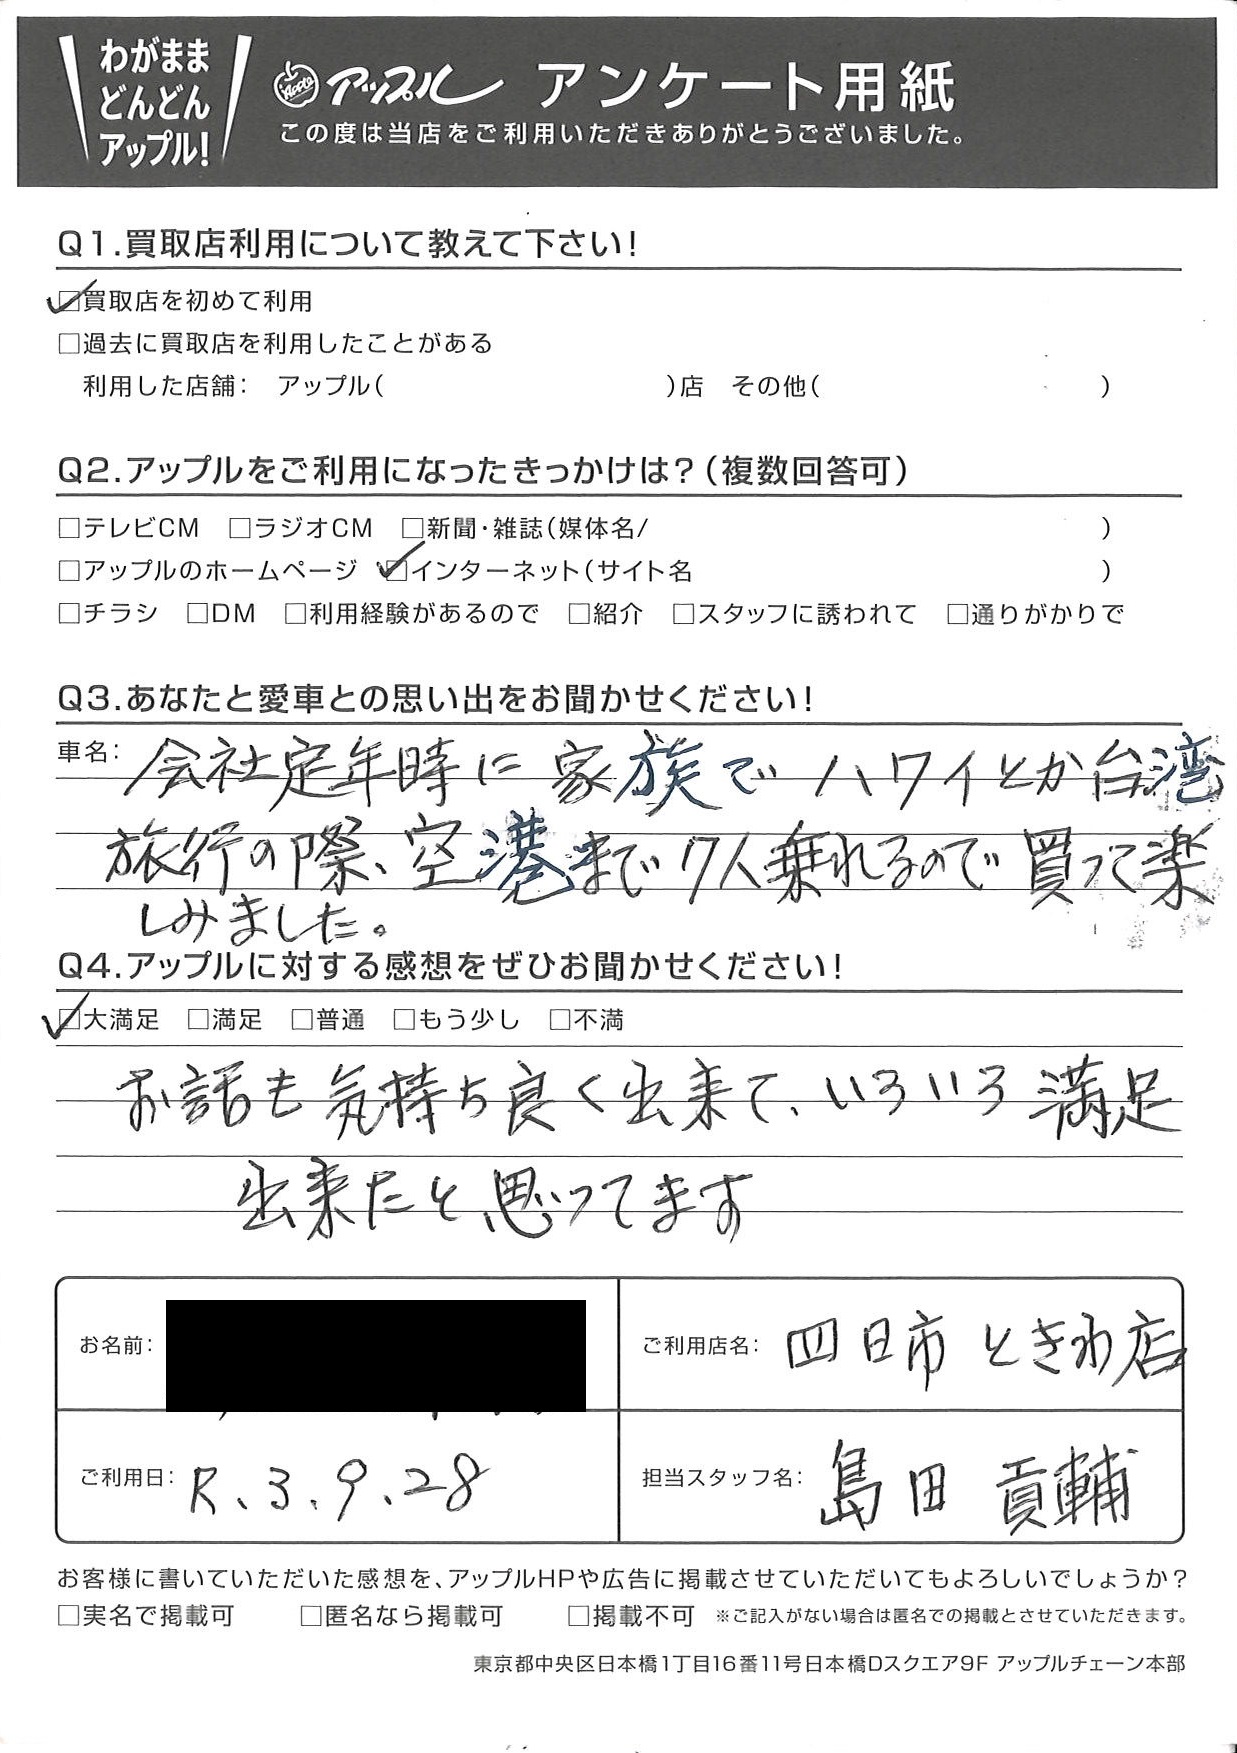 わがまま
どんどん
アップル!
Apple アップル アンケート用紙
この度は当店をご利用いただきありがとうございました。
Q1.買取店利用について教えて下さい!
☑買取店を初めて利用
□過去に買取店を利用したことがある
利用した店舗: アップル( )店 その他( )
Q2.アップルをご利用になったきっかけは?(複数回答可)
□テレビCM □ラジオCM □新聞・雑誌(媒体名/ )
□アップルのホームページ ☑インターネット(サイト名 )
□チラシ □DM □利用経験があるので □紹介 □スタッフに誘われて □通りがかりで
Q3.あなたと愛車との思い出をお聞かせください!
車名: 会社定年時に家族でハワイとか台湾
旅行の際、空港まで7人乗れるので買って楽
しみました。
Q4.アップルに対する感想をぜひお聞かせください!
☑大満足 □満足 □普通 □もう少し □不満
お話も気持ち良く出来て、いろいろ満足
出来たと思ってます
お名前:
ご利用店名: 四日市ときわ店
ご利用日: R、3、9、28
担当スタッフ名: 島田 貢輔
お客様に書いていただいた感想を、アップルHPや広告に掲載させていただいてもよろしいでしょうか?
□実名で掲載可 □匿名なら掲載可 □掲載不可 ※ご記入がない場合は匿名での掲載とさせていただきます。
東京都中央区日本橋1丁目16番11号日本橋Dスクエア9F アップルチェーン本部